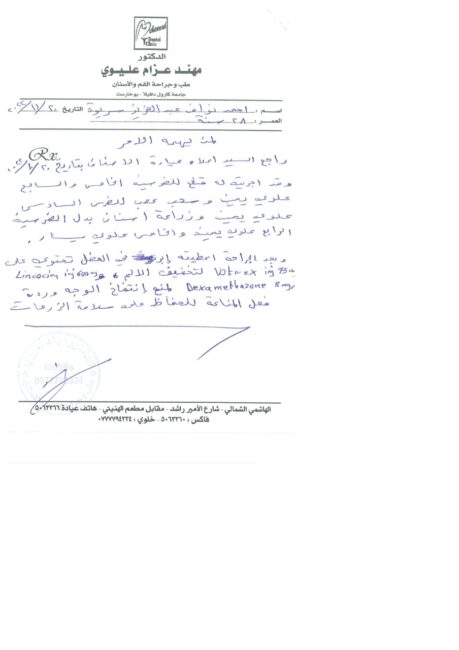 Mohannad
Dental
Clinic
الدكتور
مهند عزام عليوي
طب وجراحة الفم والأسنان
جامعة كارول دافيلا - بوخارست
اسم : احمد نواف عبد العزيز التاريخ
العمر : ٢٨ سنة
Rx
لمن يهمه الامر
راجع السيد اعلاه عيادة الاسنان بتاريخ
وقد اجريت له قلع للضرسين الخامس والسابع
علوي يمين وسحب عصب للضرس السادس
علوي يمين وزراعة اسنان بدل الضرسين
الرابع علوي يمين والخامس علوي يسار .
وبعد الجراحة اعطيته ابر في العضل تحتوي على
Lincocin inj 600mg و Voltarex inj 75m لتخفيف الالم
Dexamethazone 8mg لمنع إنتفاخ الوجه وردة
فعل المناعة للحفاظ على سلامة الزرعات
الهاشمي الشمالي - شارع الأمير راشد - مقابل مطعم الهنيني - هاتف عيادة ٥٠٦٣٣٦٦
فاكس : ٥٠٦٣٣٦٠ - خلوي : ٠٧٧٧٧٩٤٣٣٤